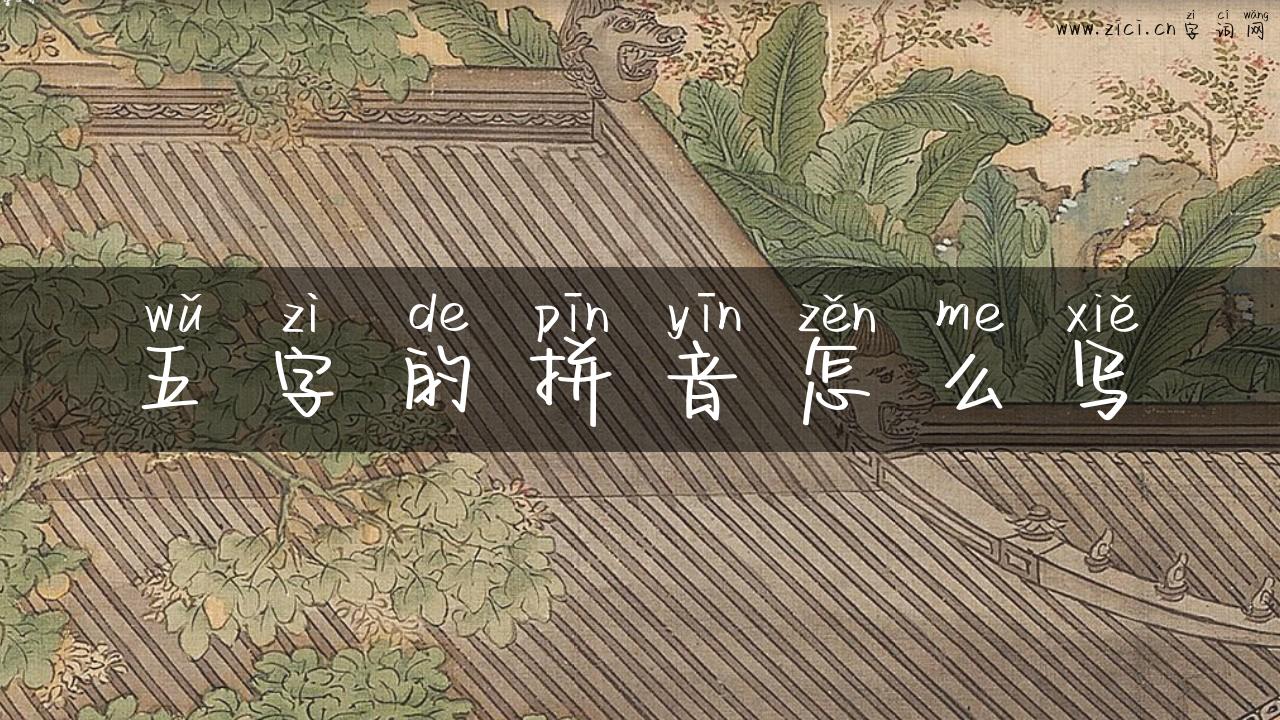 zì cí wǎng
www.zici.cn字词网
wǔ zì de pīn yīn zěn me xiě
五字的拼音怎么写